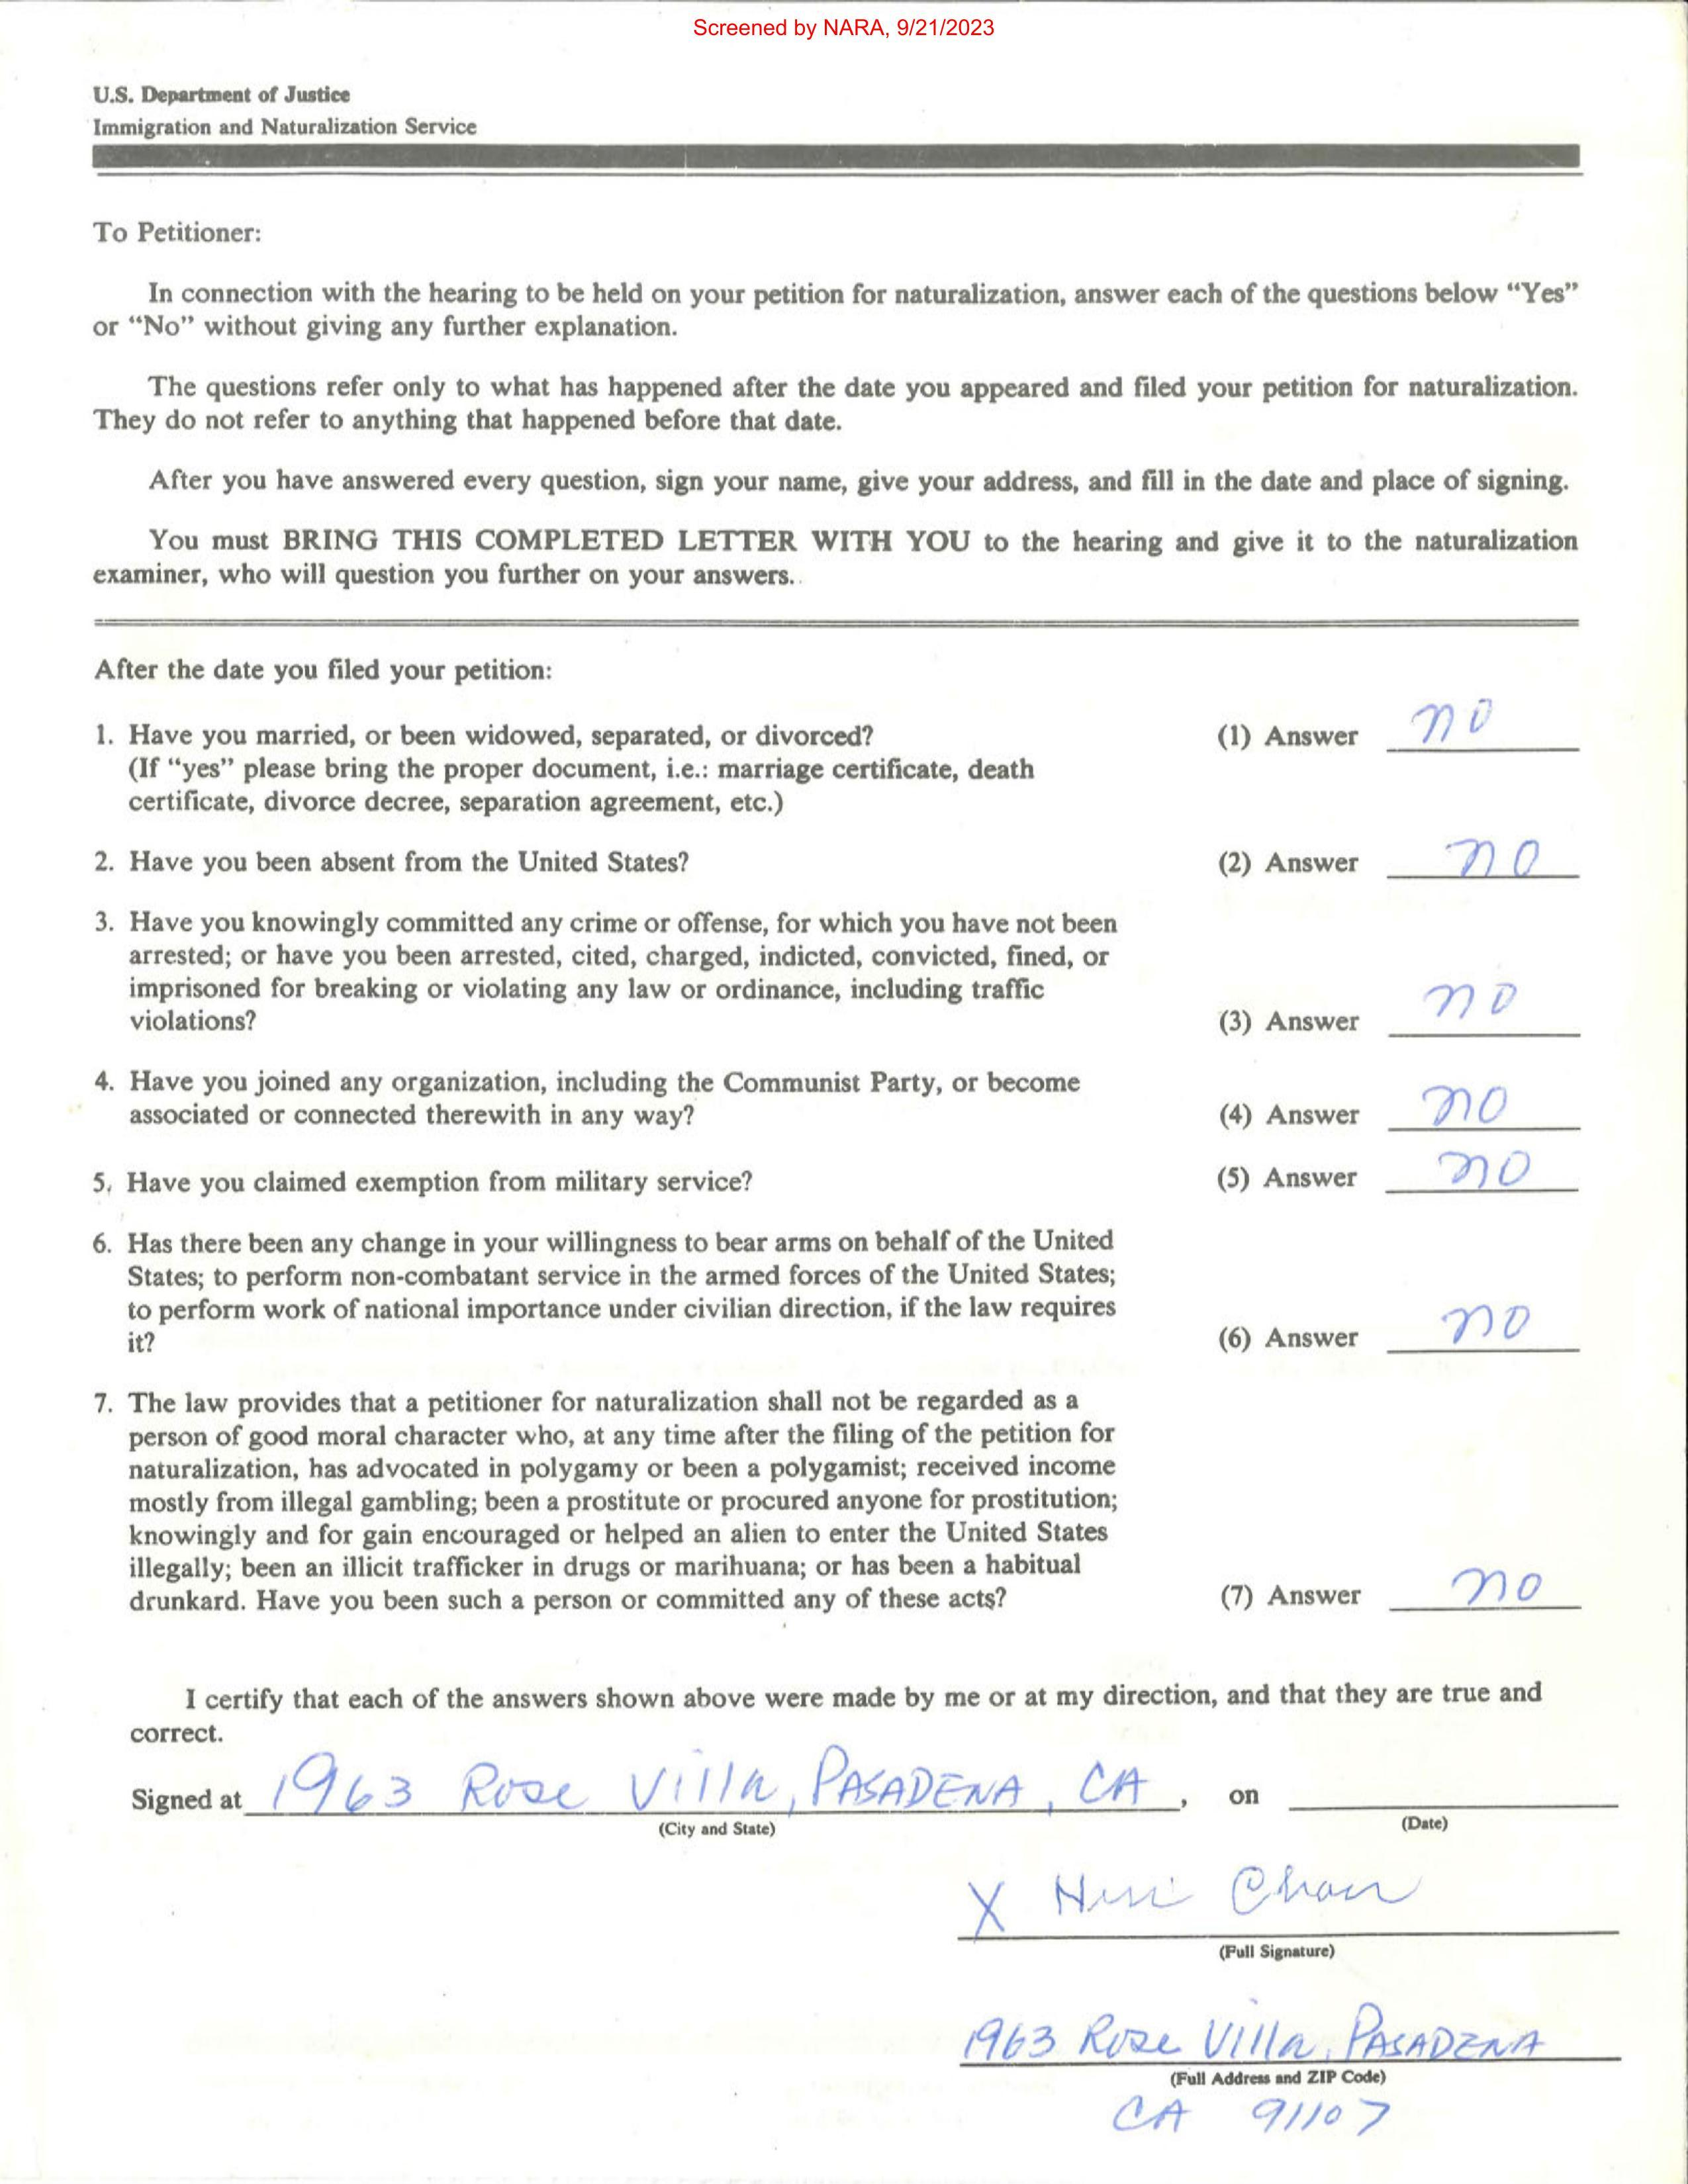 Screened by NARA, 9/21/2023
U.S. Department of Justice
Immigration and Naturalization Service
To Petitioner:
In connection with the hearing to be held on your petition for naturalization, answer each of the questions below “Yes”
or “No” without giving any further explanation.
The questions refer only to what has happened after the date you appeared and filed your petition for naturalization.
They do not refer to anything that happened before that date.
After you have answered every question, sign your name, give your address, and fill in the date and place of signing.
You must BRING THIS COMPLETED LETTER WITH YOU to the hearing and give it to the naturalization
examiner, who will question you further on your answers.
After the date you filed your petition:
1. Have you married, or been widowed, separated, or divorced? (1) Answer no
(If “yes” please bring the proper document, i.e.: marriage certificate, death
certificate, divorce decree, separation agreement, etc.)
2. Have you been absent from the United States? (2) Answer no
3. Have you knowingly committed any crime or offense, for which you have not been
arrested; or have you been arrested, cited, charged, indicted, convicted, fined, or
imprisoned for breaking or violating any law or ordinance, including traffic
violations? (3) Answer no
4. Have you joined any organization, including the Communist Party, or become
associated or connected therewith in any way? (4) Answer no
5. Have you claimed exemption from military service? (5) Answer no
6. Has there been any change in your willingness to bear arms on behalf of the United
States; to perform non-combatant service in the armed forces of the United States;
to perform work of national importance under civilian direction, if the law requires
it? (6) Answer no
7. The law provides that a petitioner for naturalization shall not be regarded as a
person of good moral character who, at any time after the filing of the petition for
naturalization, has advocated in polygamy or been a polygamist; received income
mostly from illegal gambling; been a prostitute or procured anyone for prostitution;
knowingly and for gain encouraged or helped an alien to enter the United States
illegally; been an illicit trafficker in drugs or marihuana; or has been a habitual
drunkard. Have you been such a person or committed any of these acts? (7) Answer no
I certify that each of the answers shown above were made by me or at my direction, and that they are true and
correct.
Signed at 1963 Rose Villa, PASADENA, CA, on
(City and State) (Date)
X Chan
(Full Signature)
1963 Rose Villa, PASADENA
(Full Address and ZIP Code)
CA 91107